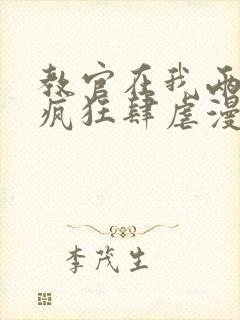 教官在我两
疯狂肆虐漫
李茂生